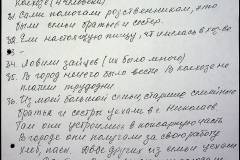 колхозе (4 человека)
31. Сами помогали родственникам, это
были семьи братьев и сестер.
32. Ели настоящую пищу, что имелась в хоз-ве
33. -
34. Ловили зайцев (их было много)
35. В город нечего было везти. В колхозе не
платили трудодни.
36. Из моей большой семьи, старшие
братья и сестры уехали в г. Николаев.
Там они устроились в
В городе они получали за свою работу
хлеб, паек. Двое других из семьи уехали